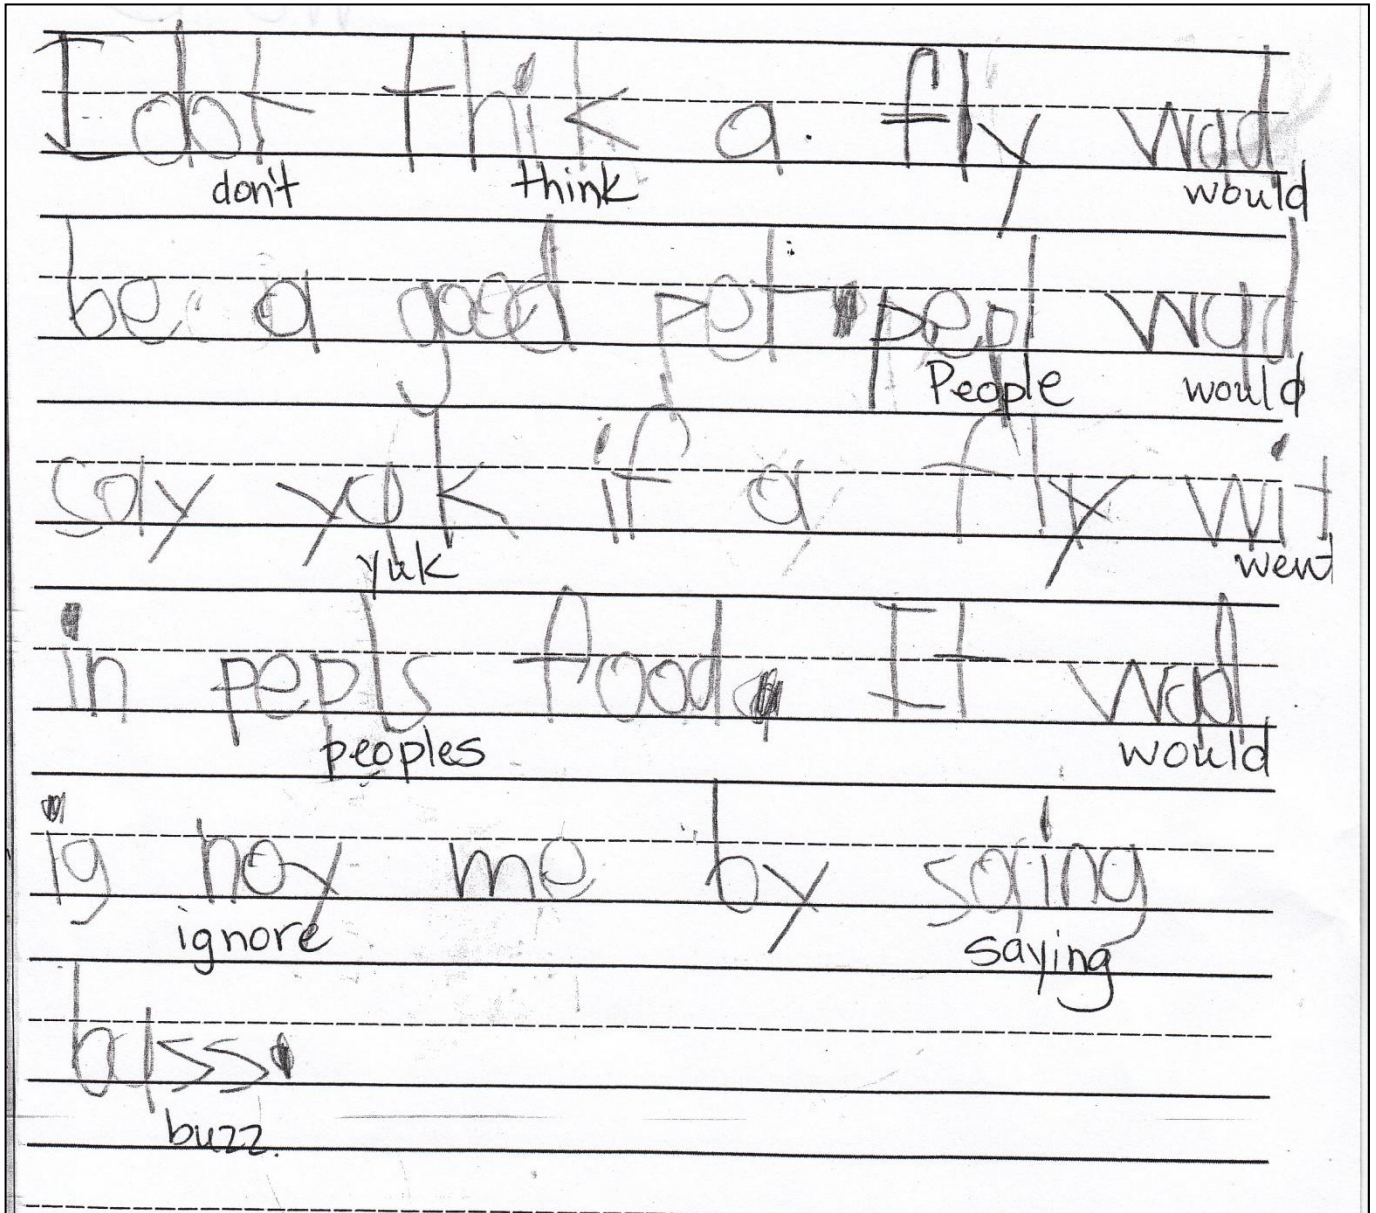 I dot thik a fly wad
don't think would
be a good pet. pepl wad
People would
say yak if a fly wit
yuk went
in pepls food. It wad
peoples would
ig noy me by saing
ignore saying
bass.
buzz.